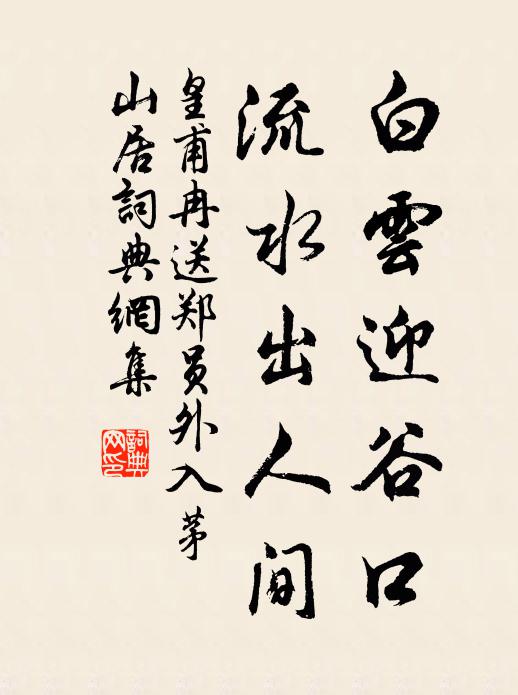 白雲迎谷口
流水出人间
皇甫冉送郑员外入茅
山居詞典網集
詞典网印